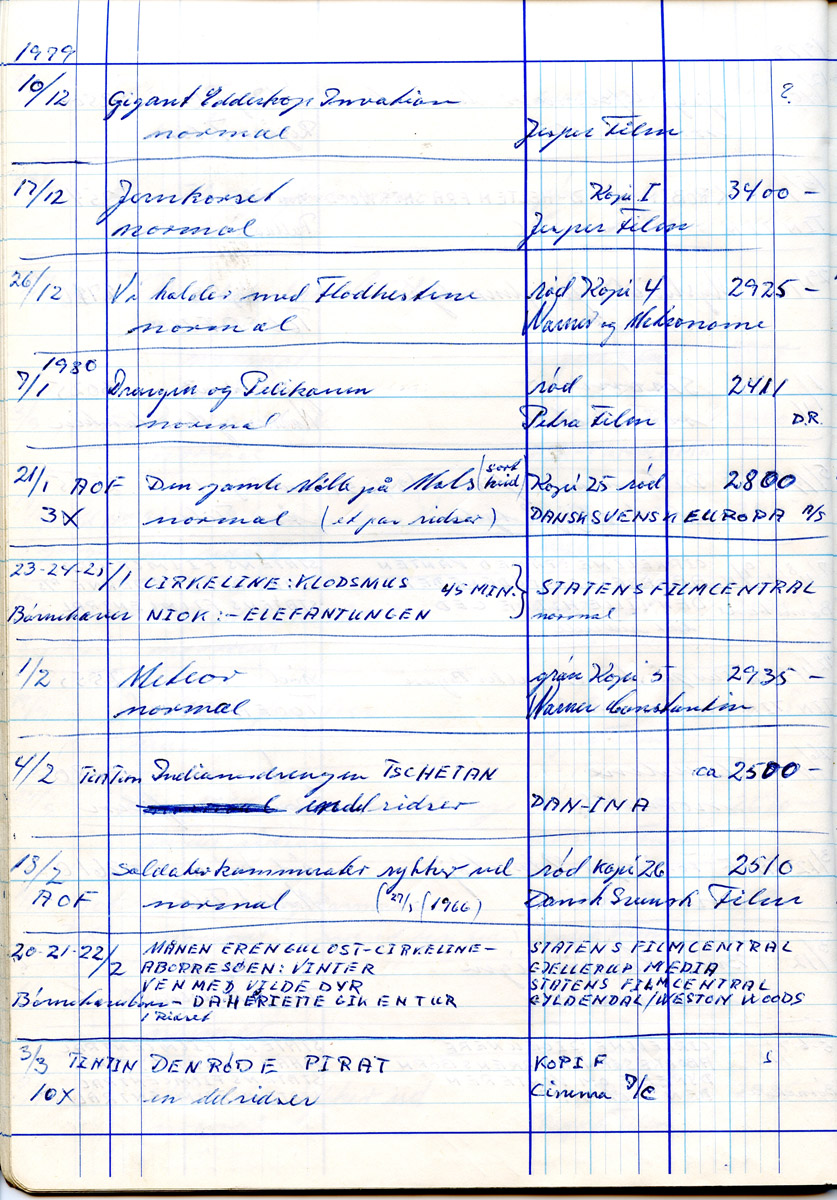 1979
10/12 Gigant Edderkop Invation ?
normal Jesper Film
17/12 Jernkorset Kopi I 3400 -
normal Jesper Film
26/12 Vi holder med Flodhestene rød Kopi 4 2925 -
normal Warner og Metronome
1980
7/1 Drengen og Pelikanen rød 2411
normal Petra Film D.R.
21/1 AOF Den gamle Mølle på Mols (sort hvid) Kopi 25 rød 2800
3X normal (et par ridser) DANSK SVENSK EUROPA A/S
23-24-25/1 CIRKELINE: KLODSMUS 45 MIN. } STATENS FILMCENTRAL
Børnehaver NICK: - ELEFANTUNGEN normal
1/2 Meteor grøn Kopi 5 2935 -
normal Warner Constantin
4/2 TinTin Indianerdrengen TSCHETAN ca 2500 -
en del ridser DAN-INA
18/2 Soldaterkammerater rykker ud rød Kopi 26 2510
AOF normal (27/5 1966) Dansk Svensk Film
20-21-22/2 MÅNEN ER EN GUL OST-CIRKELINE- STATENS FILMCENTRAL
ABORRESØEN: VINTER GJELLERUP MEDIA
VEN MED VILDE DYR STATENS FILMCENTRAL
Børnehaver - DA HERIETTE GIK EN TUR GYLDENDAL/WESTON WOODS
1 Ridset
3/3 TINTIN DEN RØDE PIRAT KOPI F
10X en del ridser Cinema